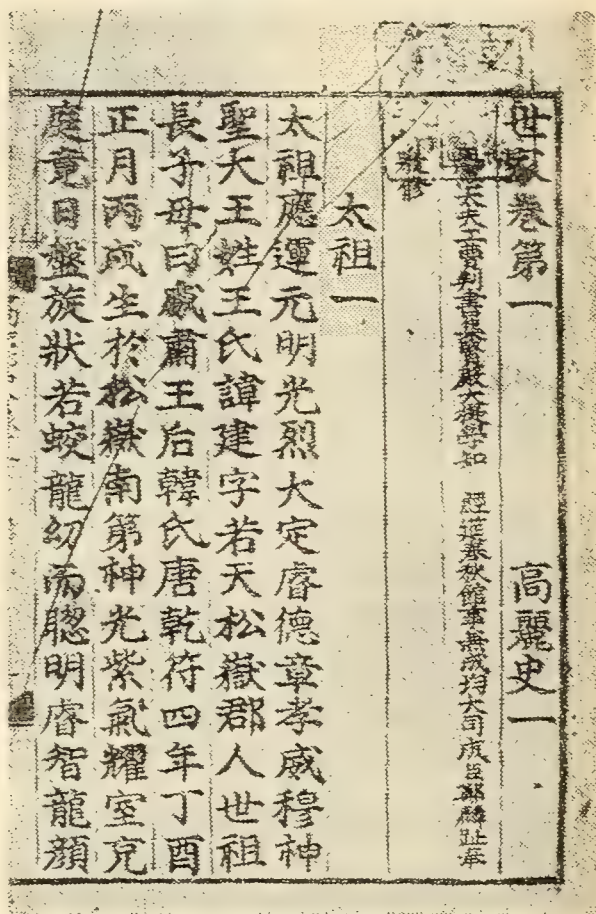 世家卷第一 高麗史一
憲大夫工曹判書集賢殿大提學知 經筵春秋館事兼成均大司成臣鄭麟趾奉
教修
太祖一
太祖應運元明光烈大定睿德章孝威穆神
聖大王姓王氏諱建字若天松嶽郡人世祖
長子母曰威肅王后韓氏唐乾符四年丁酉
正月丙戌生於松嶽南第神光紫氣耀室充
庭竟日盤旋狀若蛟龍幼而聦明睿智龍顔